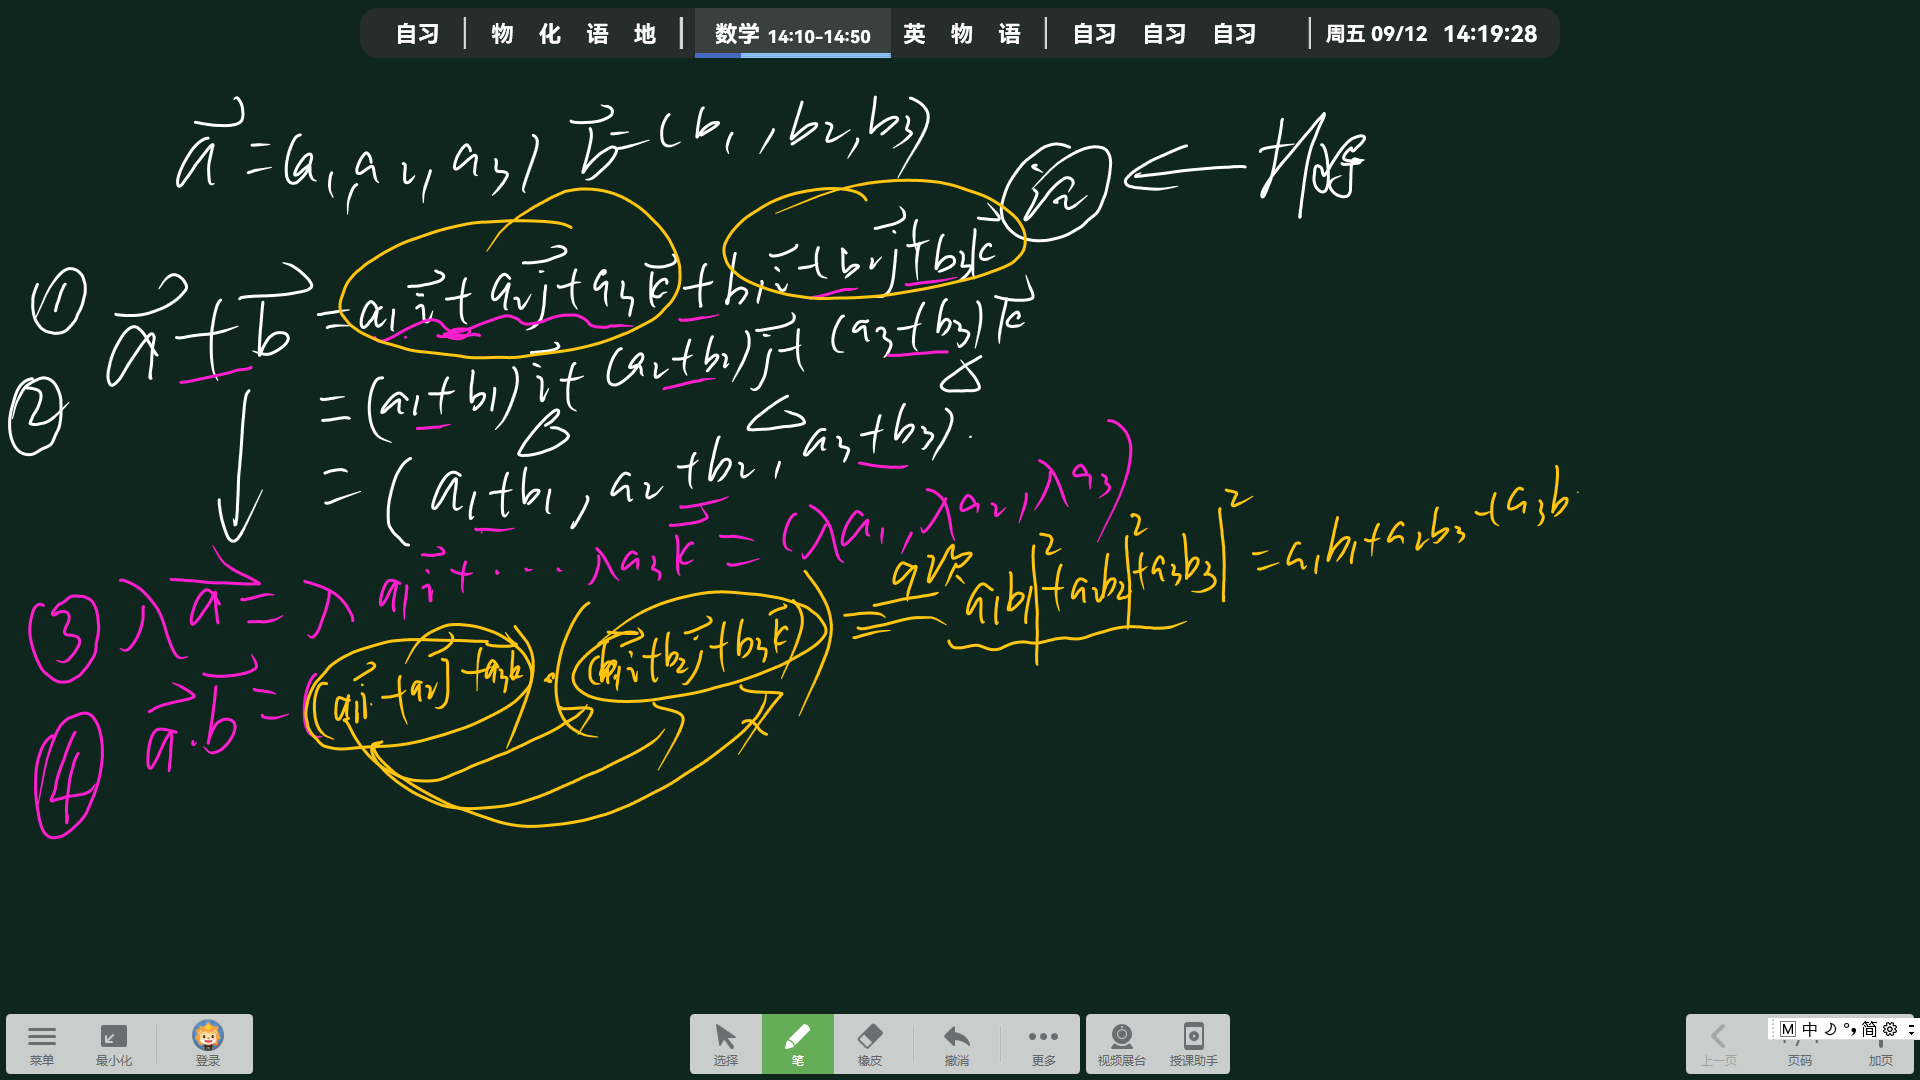 自习 | 物 化 语 地 | 数学 14:10-14:50 英 物 语 | 自习 自习 自习 | 周五 09/12 14:19:28
a⃗=(a₁,a₂,a₃) b⃗=(b₁,b₂,b₃)
① a⃗+b⃗ =a₁i⃗+a₂j⃗+a₃k⃗+b₁i⃗+b₂j⃗+b₃k⃗
② =(a₁+b₁)i⃗+(a₂+b₂)j⃗+(a₃+b₃)k⃗
=(a₁+b₁,a₂+b₂,a₃+b₃).
③ λa⃗=λa₁i⃗+⋯λa₃k⃗=(λa₁,λa₂,λa₃)
④ a⃗·b⃗=(a₁i⃗+a₂j⃗+a₃k⃗)·(b₁i⃗+b₂j⃗+b₃k⃗) 9次 a₁b₁|²+a₂b₂|²+a₃b₃|²=a₁b₁+a₂b₃+a₃b
菜单 最小化 登录 选择 笔 橡皮 撤消 更多 视频展台 授课助手 上一页 页码 加页
M 中 简